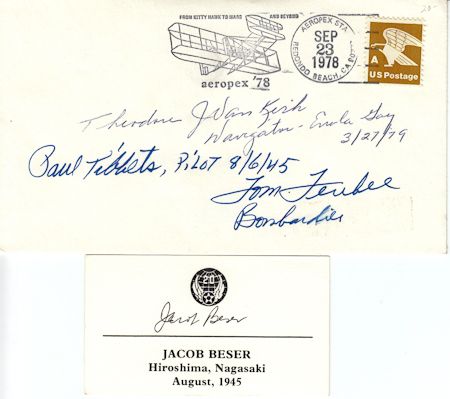 FROM KITTY HAWK TO MARS AND BEYOND
aeropex '78
AEROPEX STA
SEP
23
1978
REDONDO BEACH, CA
20-
A
US Postage
Theodore J Van Kirk
Navigator - Enola Gay
3/27/79
Paul Tibbets, Pilot 8/6/45
Tom Ferebee
Bombardier
20
Jacob Beser
JACOB BESER
Hiroshima, Nagasaki
August, 1945